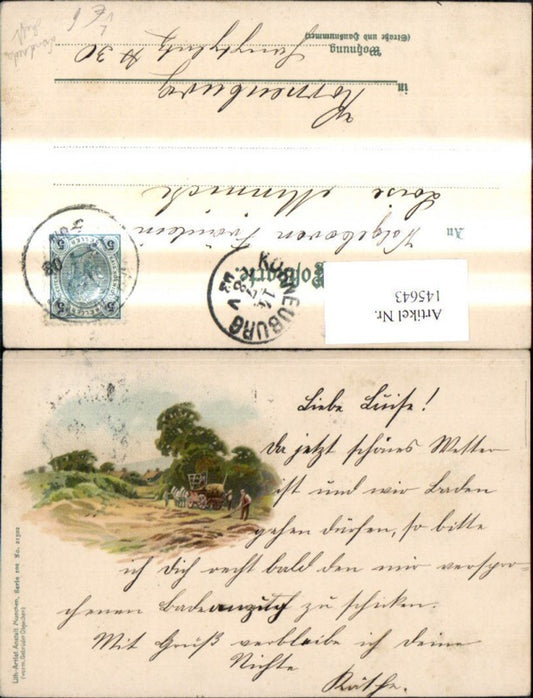 Postkarte
An Wolgeboren Fräulein
Loise
in Korneuburg
Wohnung
(Straße und Hausnummer)
№ 30
5 5
KORNEUBURG
Artikel Nr.
145643
Liebe Luise!
Da jetzt schönes Wetter
ist und wir Baden
gehen dürfen, so bitte
ich dich recht bald den mir verspro-
chenen Badeanzuch zu schicken.
Mit Gruß verbleibe ich deine
Nichte
Käthe.
Lith.-Artist. Anstalt München, Serie
(vorm. Gebrüder Obpacher)